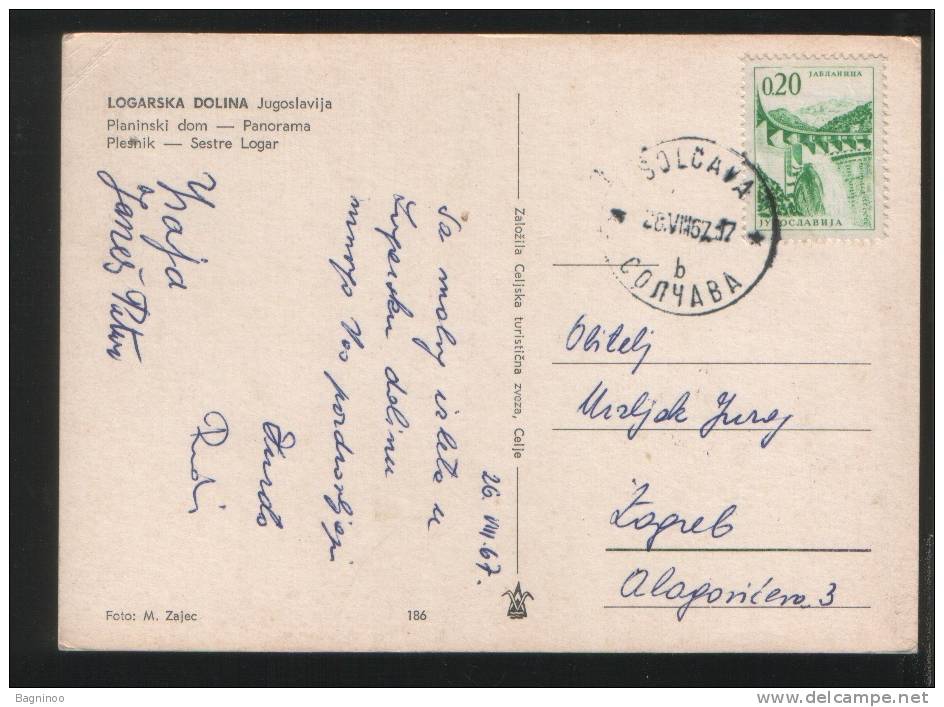 LOGARSKA DOLINA Jugoslavija
Planinski dom — Panorama
Plesnik — Sestre Logar
0.20
ЈАБЛАНИЦА
ЈУГОСЛАВИЈА
SOLČAVA
26.VIII67.17
b
СОЛЧАВА
26. VIII. 67.
Sa malog izleta u
Logarsku dolinu
mnogo Vas pozdravljaju
Đurđa
Rudi
Janez
Založila Celjska turistična zveza, Celje
Obitelj
Mrzljak Juraj
Zagreb
Alagovićeva 3
Foto: M. Zajec
186
Bagninoo
www.delcampe.net